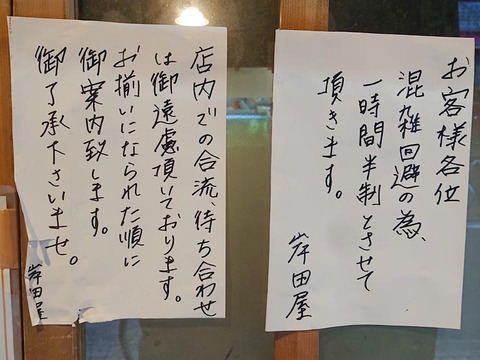 お客様各位
混雑回避の為、
一時間半制とさせて
頂きます。
岸田屋
店内での合流、待ち合わせ
は御遠慮頂いております。
お揃いになられた順に
御案内致します。
御了承下さいませ。
岸田屋